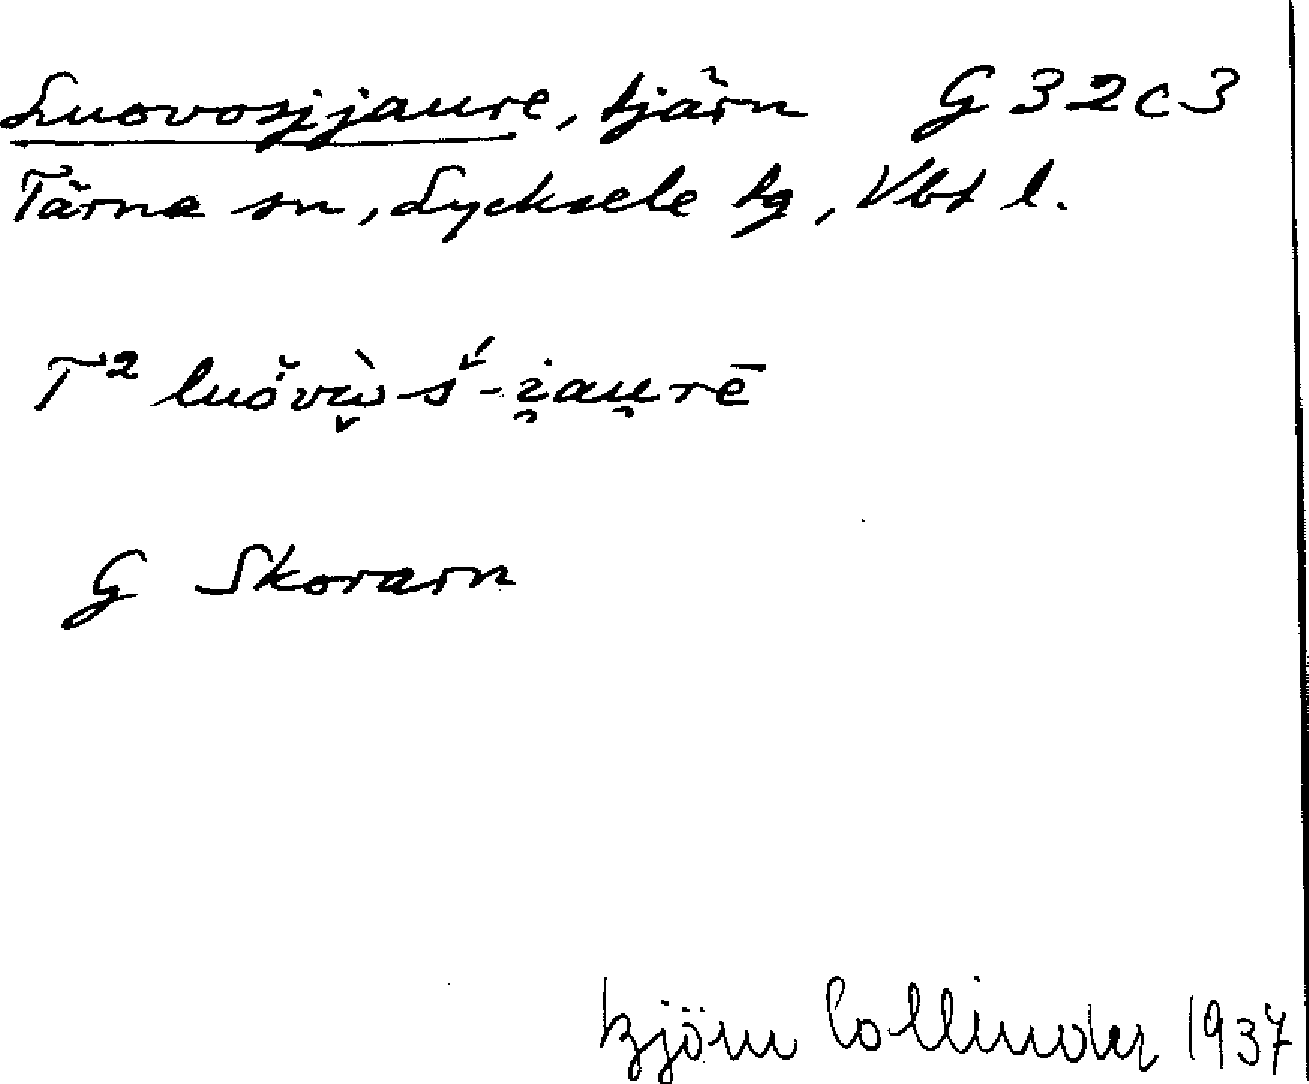 Luovosjjaure, tjärn G 32c3
Tärna sn, Lycksele lg, Vbt l.
T² luŏvὼ̬ś-i̯au̯rē
G Skorarn
Björn Collinder 1937